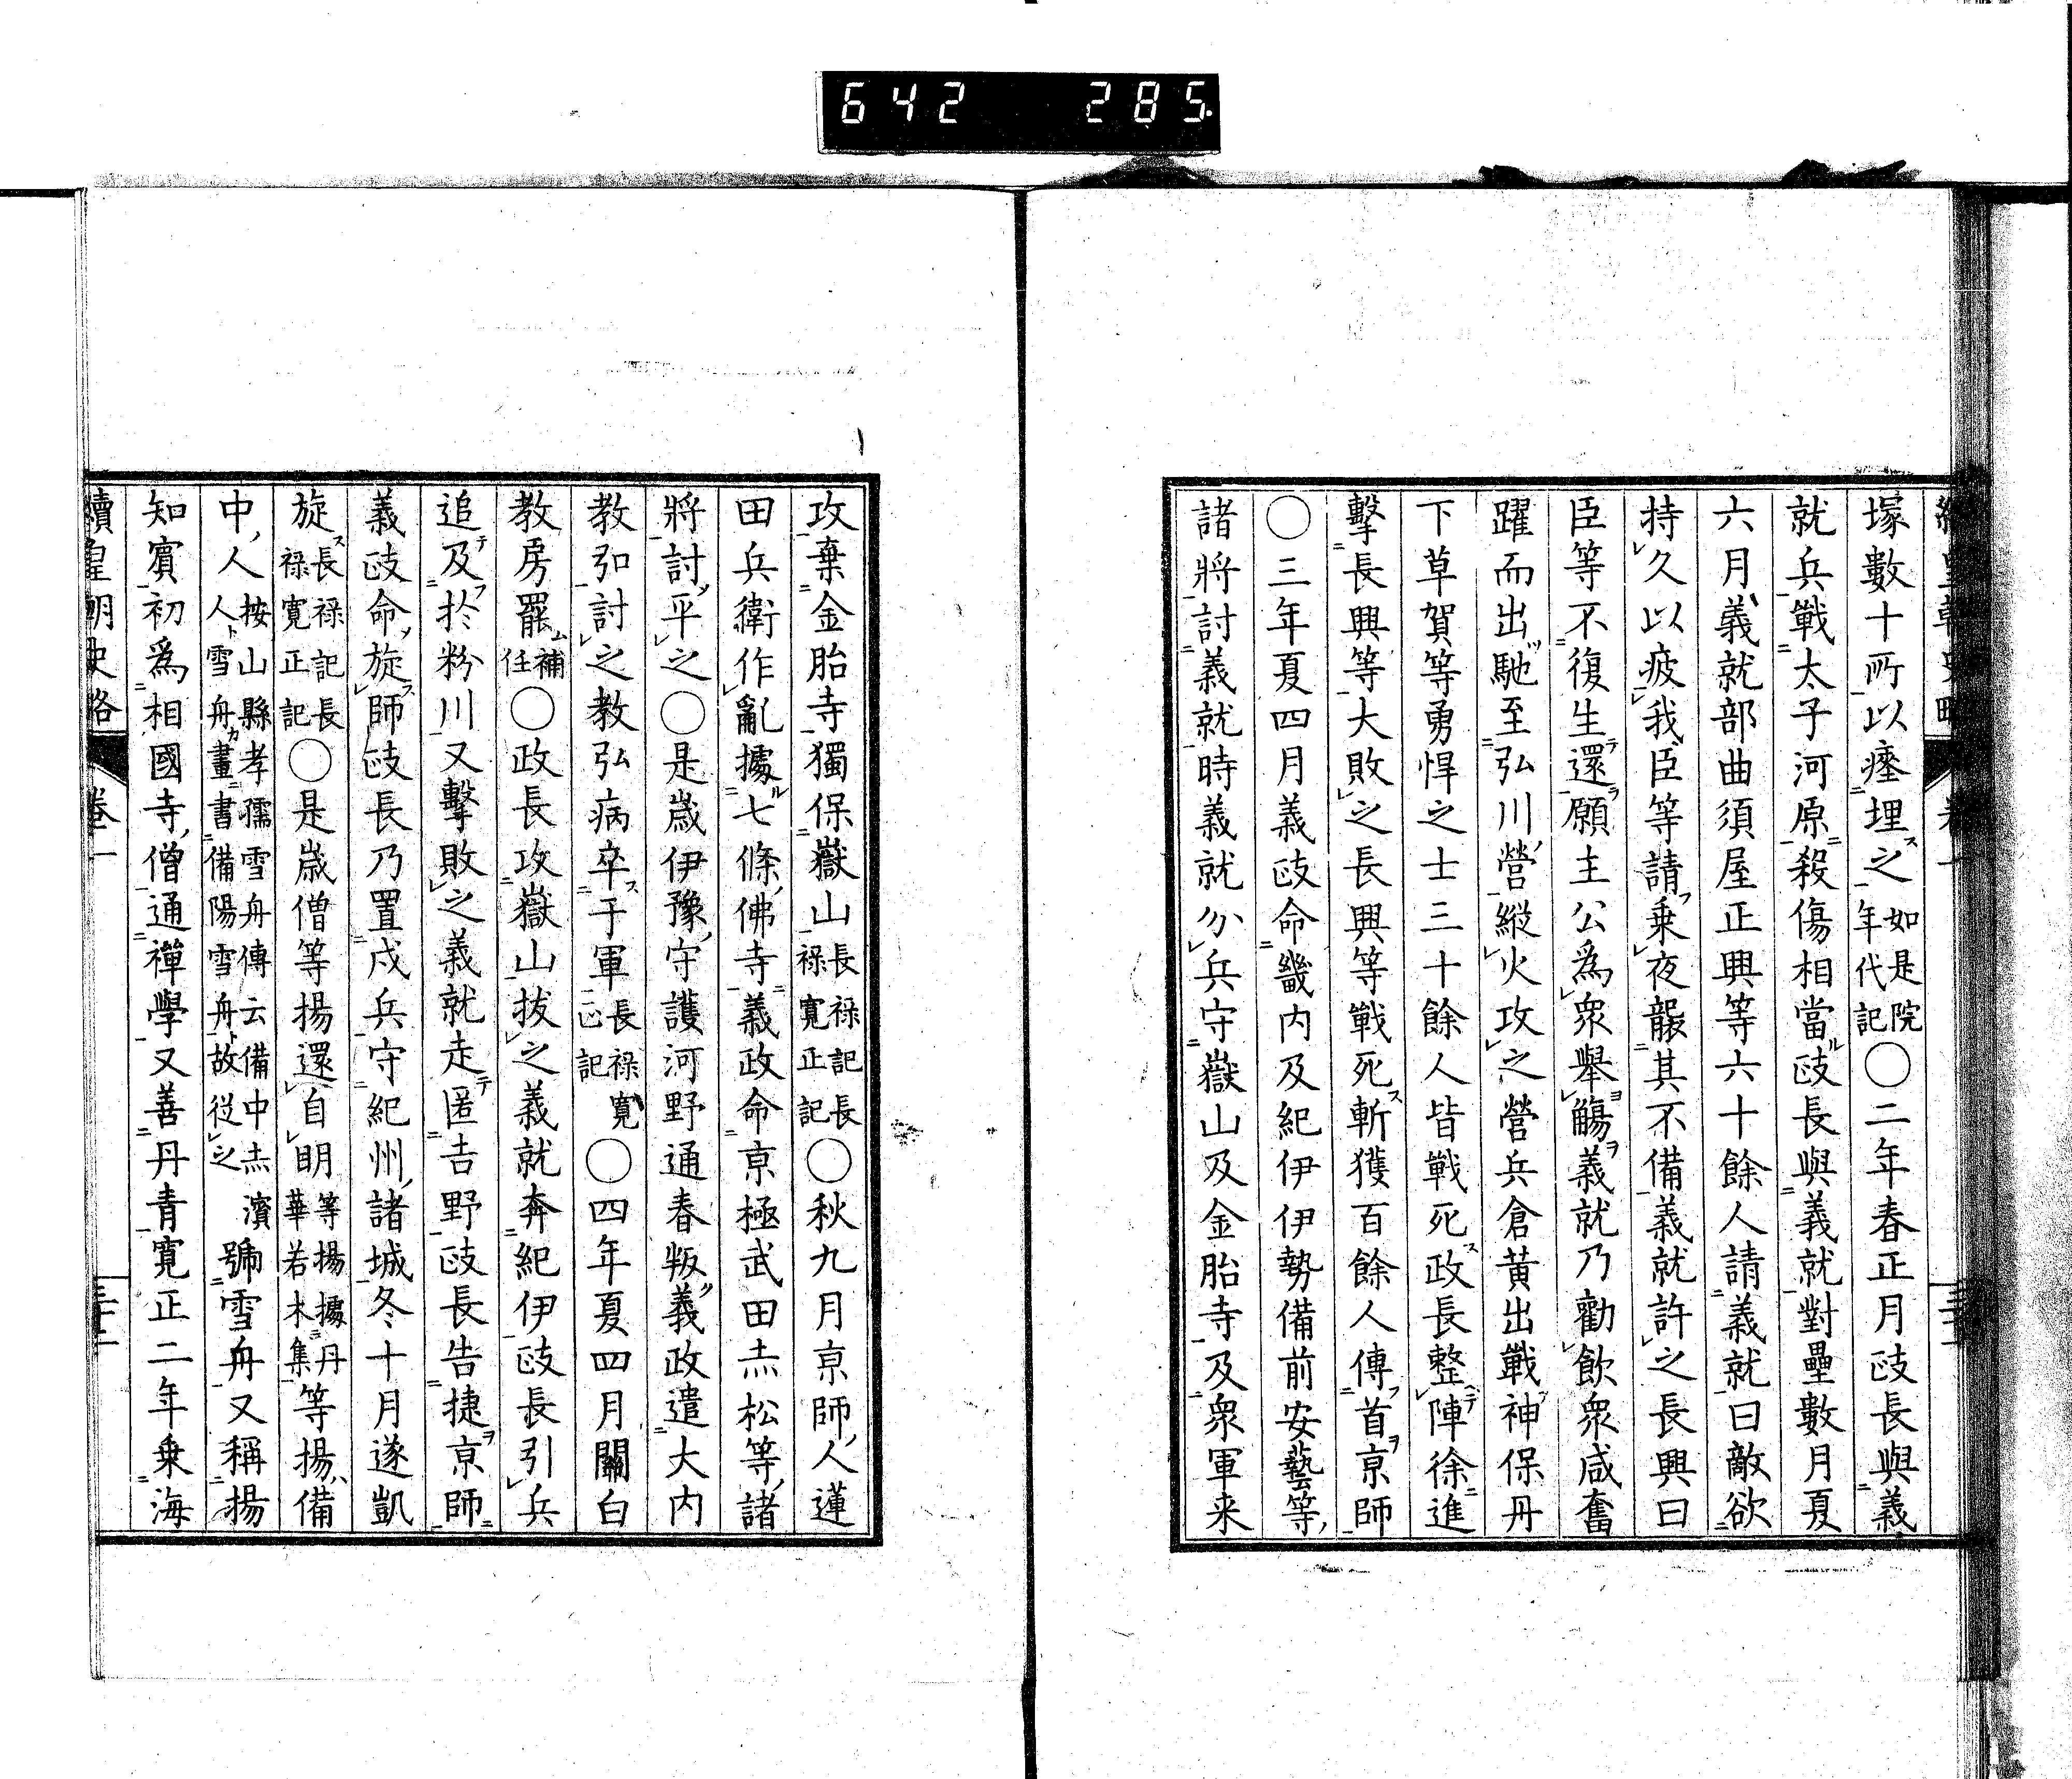 642 285
塚數十所以瘞埋之如是院年代記〇二年春正月政長與義
就兵戰太子河原殺傷相當政長與義就對壘數月夏
六月義就部曲須屋正興等六十餘人請義就曰敵欲
持久以疲我臣等請乘夜襲其不備義就許之長興曰
臣等不復生還願主公爲衆舉觴義就乃勸飲衆咸奮
躍而出馳至弘川營縱火攻之營兵倉黄出戰神保丹
下草賀等勇悍之士三十餘人皆戰死政長整陣徐進
擊長興等大敗之長興等戰死斬獲百餘人傳首京師
〇三年夏四月義政命畿内及紀伊伊勢備前安藝等
諸將討義就時義就分兵守嶽山及金胎寺及衆軍来
攻棄金胎寺獨保嶽山長禄記長禄寛正記〇秋九月京師人蓮
田兵衛作亂據七條佛寺義政命京極武田赤松等諸
將討平之〇是歳伊豫守護河野通春叛義政遣大内
教弘討之教弘病卒于軍長禄寛正記〇四年夏四月關白
教房罷補任〇政長攻嶽山拔之義就奔紀伊政長引兵
追及於粉川又擊敗之義就走匿吉野政長告捷京師
義政命旋師政長乃置戍兵守紀州諸城冬十月遂凱
旋長禄記長禄寛正記〇是歳僧等揚還自明等揚據丹華若木集等揚備
中人按山縣孝孺雪舟傳云備中赤濱人雪舟畫書備陽雪舟故從之號雪舟又稱揚
知賓初爲相國寺僧通禪學又善丹青寛正二年乗海
續皇朝史略 卷一